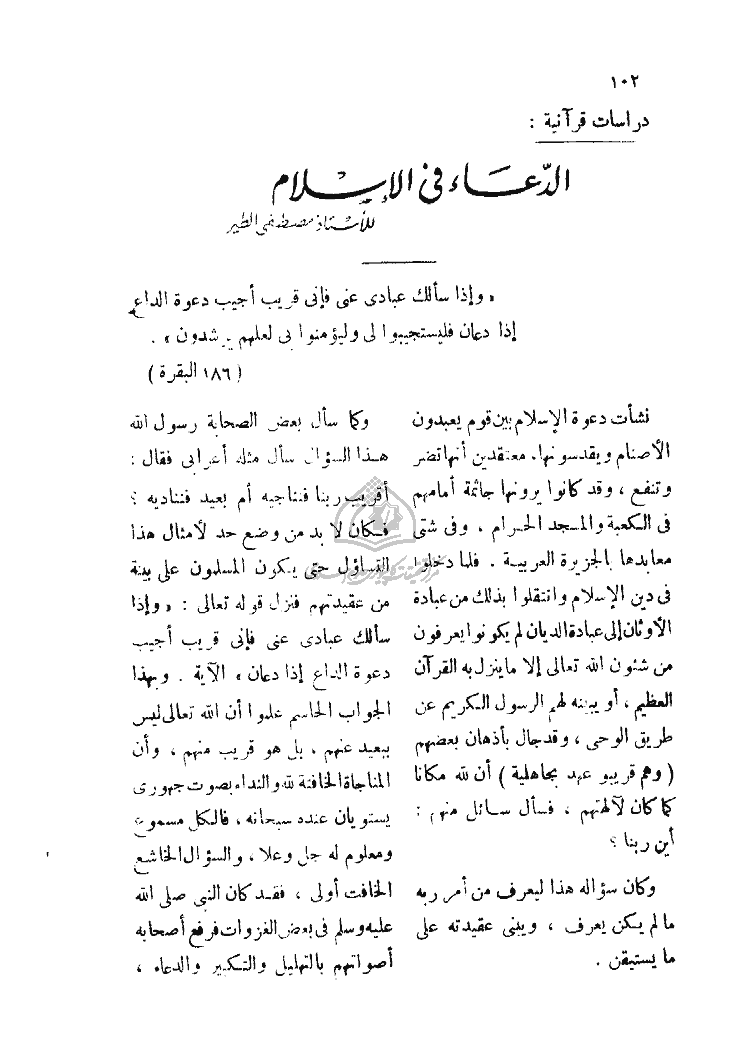 ١٠٢
دراسات قرآنية :
الدّعاء في الإسلام
للأستاذ مصطفى الطير
« وإذا سألك عبادى عنى فإنى قريب أجيب دعوة الداع
إذا دعان فليستجيبوا لى وليؤمنوا بى لعلهم يرشدون » .
( ١٨٦ البقرة )
نشأت دعوة الإسلام بين قوم يعبدون
الأصنام ويقدسونها. معتقدين أنها تضر
وتنفع ، وقد كانوا يرونها جاثمة أمامهم
فى الكعبة والمسجد الحرام . وفى شتى
معابدها بالجزيرة العربية . فلما دخلوا
فى دين الإسلام وانتقلوا بذلك من عبادة
الأوثان إلى عبادة الديان لم يكونوا يعرفون
من شئون الله تعالى إلا ما ينزل به القرآن
العظيم ، أو يبينه لهم الرسول الكريم عن
طريق الوحى ، وقد جال بأذهان بعضهم
( وهم قريبو عهد بجاهلية ) أن لله مكانا
كما كان لآلهتهم ، فسأل سائل منهم :
أين ربنا ؟
وكان سؤاله هذا ليعرف من أمر ربه
ما لم يكن يعرف ، ويبنى عقيدته على
ما يستيقن .
وكما سأل بعض الصحابة رسول الله
هذا السؤال سأل مثله أعرابى فقال :
أقريب ربنا فنناجيه أم بعيد فنناديه ؟
فكان لا بد من وضع حد لأمثال هذا
التساؤل حتى يكون المسلمون على بينة
من عقيدتهم فنزل قوله تعالى : « وإذا
سألك عبادى عنى فإنى قريب أجيب
دعوة الداع إذا دعان » الآية . وبهذا
الجواب الحاسم علموا أن الله تعالى ليس
ببعيد عنهم . بل هو قريب منهم ، وأن
المناجاة الخافتة لله والنداء بصوت جهورى
يستويان عنده سبحانه ، فالكل مسموع
ومعلوم له جل وعلا ، والسؤال الخاشع
الخافت أولى ، فقد كان النبى صلى الله
عليه وسلم فى بعض الغزوات فرفع أصحابه
أصواتهم بالتهليل والتكبير والدعاء ،